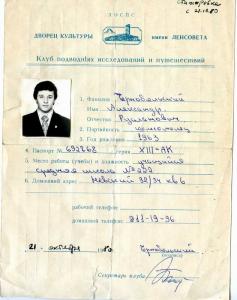 ДОСПС
ДВОРЕЦ КУЛЬТУРЫ ИМЕНИ ЛЕНСОВЕТА
Клуб подводных исследований и путешествий
1. Фамилия
Имя Александр
Отчество Русланович
2. Партийность комсомолец
3. Год рождения 1963
4. Паспорт № 692868 серия XIII-АК
5. Место работы (учебы) и должность учащийся
средняя школа № 222
6. Домашний адрес Невский 32/34 кв 6
рабочий телефон
домашний телефон 211-19-96
21 октября 1980
(подпись)
Секретарь клуба